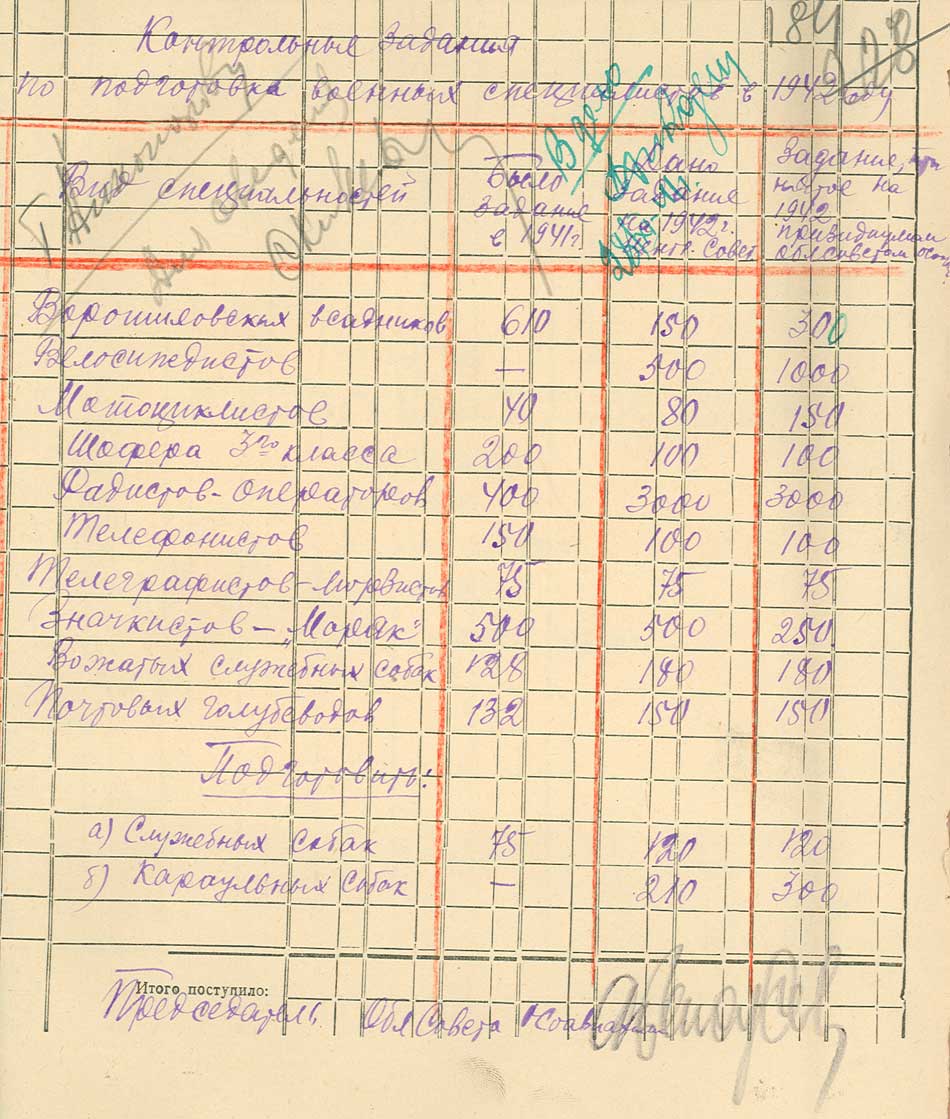 184
228
Контрольные задания
по подготовке военных специалистов в 1942 году
В дело
Вид специальностей
Было задание в 1941 г.
Дано задание на 1942 г. Центр. Совет
Задание, принятое на 1942 президиумом облсоветом Осо
Ворошиловских всадников 610 150 300
Велосипедистов — 500 1000
Мотоциклистов 40 80 150
Шофера 3го класса 200 100 100
Радистов-операторов 400 3000 3000
Телефонистов 150 100 100
Телеграфистов-морзистов 75 75 75
Значкистов — „Моряк" 500 500 250
Вожатых служебных собак 128 180 180
Почтовых голубеводов 132 150 150
Подготовить:
а) Служебных собак 75 120 120
б) Караульных собак — 210 300
Итого поступило:
Председатель ОблСовета Осоавиахим